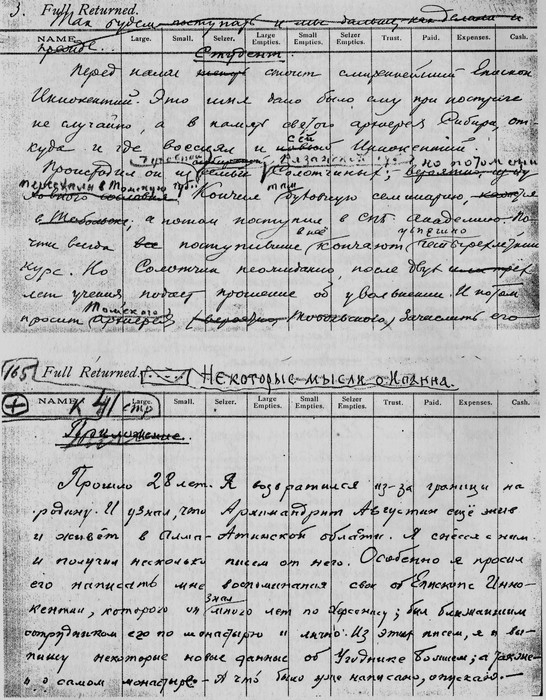 3. Full Returned.
Так будем поступать и мы дальше, как делали и
прежде.
NAME. Large. Small. Selzer. Large Empties. Small Empties. Trust. Paid. Expenses. Cash.
Студент.
Перед нами стоит смиреннейший Епископ
Иннокентий. Это имя дано было ему при постриге
не случайно, а в память святого архиерея Сибири, от-
куда и где воссиял и св. Иннокентий.
Происходил он из семьи Солотчиных, Рязанской но потом они
переехали в Томскую
Кончил там духовную семинарию,
в Тобольске, а потом поступил в СПБ. Академию. По-
чти всегда все поступившие в неё кончают успешно четырехлетний
курс. Но Солотчин неожиданно, после двух или трёх
лет учения, подает прошение об увольнении. И потом
просит Томского архиерея, (вероятно, Тобольского) зачислить его
165 Full Returned. Некоторые мысли о. Иоанна.
NAME. Large. Small. Selzer. Large Empties. Small Empties. Trust. Paid. Expenses. Cash.
К 41 стр.
Приложение.
Прошло 28 лет. Я возвратился из-за границы на
родину. И узнал, что Архимандрит Августин ещё жив
и живёт в Алма-Атинской области. Я снесся с ним
и получил несколько писем от него. Особенно я просил
его написать мне воспоминания свои об Епископе Инно-
кентии, которого он знал много лет по Херсонису; был ближайшим
сотрудником его по монастырю и лично. Из этих писем, я и вы-
пишу некоторые новые данные об Угоднике Божием; а также
и о самом монастыре. А что было уже написано, опускаю.